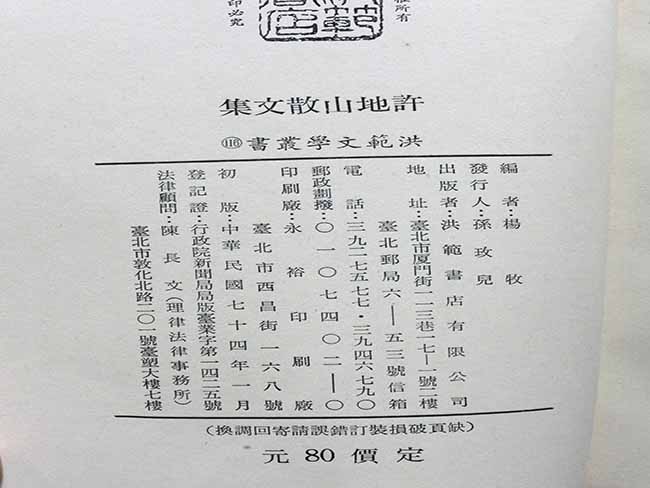 權所有
印必究
許地山散文集
洪範文學叢書 116
編者：楊牧
發行人：孫玫兒
出版者：洪範書店有限公司
地址：臺北市厦門街一一三巷一七—一號二樓
臺北郵局六—五三號信箱
電話：三九二七五七七・三九四六七九〇
郵政劃撥：〇一〇七四〇二—〇
印刷廠：永裕印刷廠
臺北市西昌街一六八號
初版：中華民國七十四年一月
登記證：行政院新聞局局版臺業字第一四二五號
法律顧問：陳長文（理律法律事務所）
臺北市敦化北路二〇一號臺塑大樓七樓
（缺頁破損裝訂錯誤請寄回調換）
定價 80 元